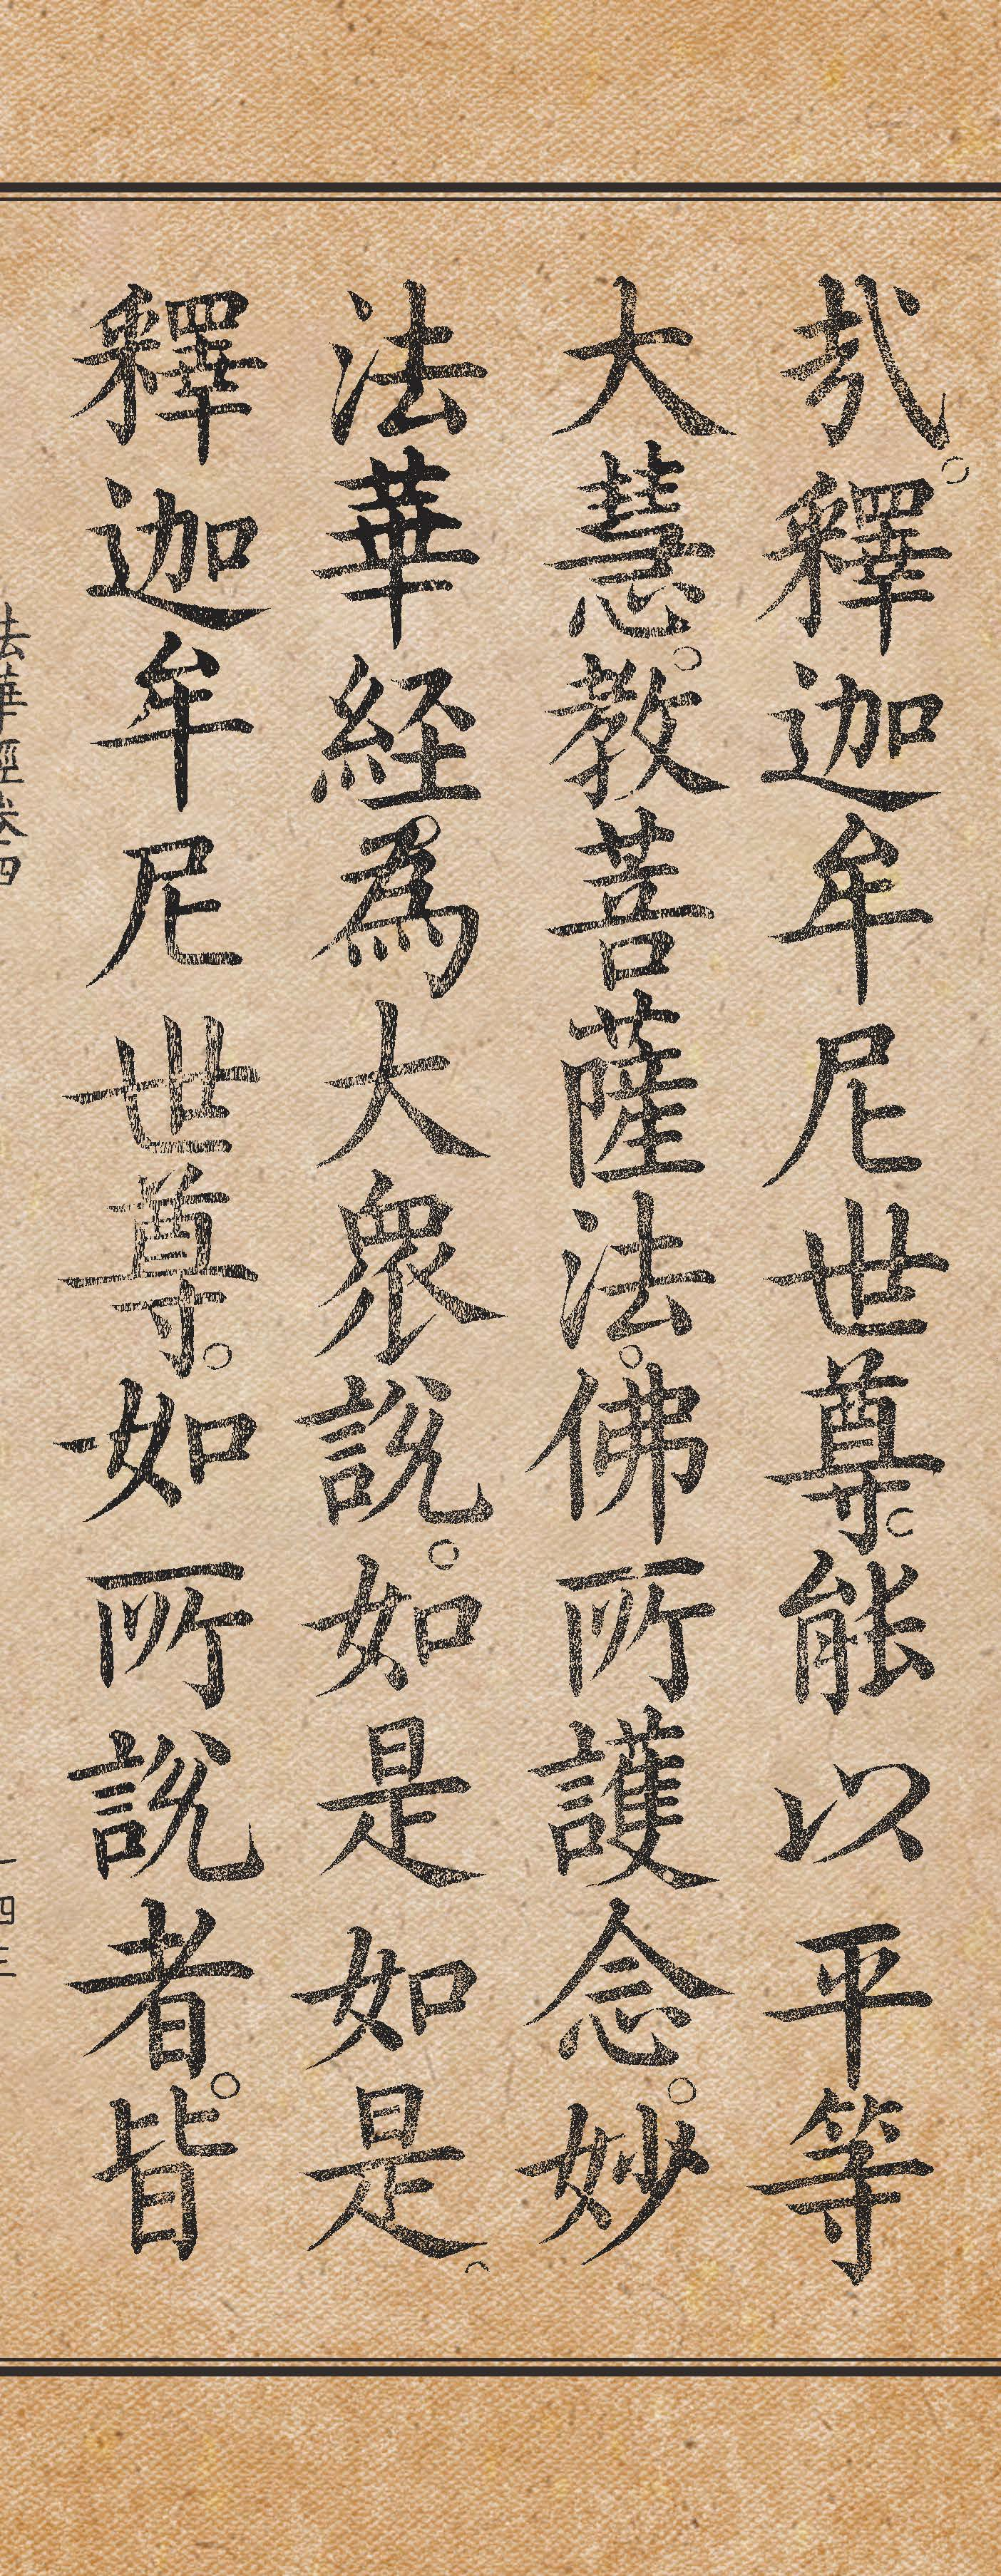 哉。釋迦牟尼世尊。能以平等
大慧。教菩薩法。佛所護念。妙
法華経。為大眾說。如是如是。
釋迦牟尼世尊。如所說者。皆
法華經卷四
一四三